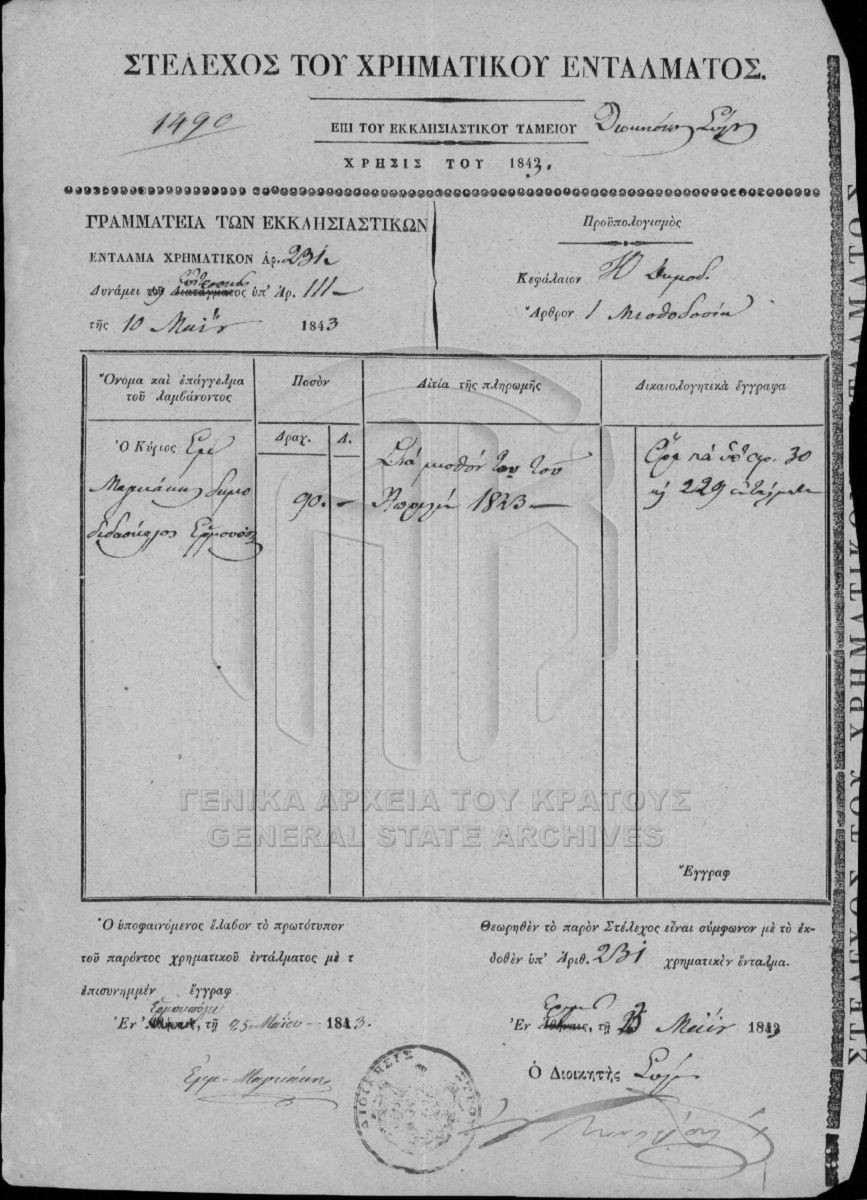 ΣΤΕΛΕΧΟΣ ΤΟΥ ΧΡΗΜΑΤΙΚΟΥ ΕΝΤΑΛΜΑΤΟΣ.
1490
ΕΠΙ ΤΟΥ ΕΚΚΛΗΣΙΑΣΤΙΚΟΥ ΤΑΜΕΙΟΥ
ΧΡΗΣΙΣ ΤΟΥ 1843.
ΓΡΑΜΜΑΤΕΙΑ ΤΩΝ ΕΚΚΛΗΣΙΑΣΤΙΚΩΝ
ΕΝΤΑΛΜΑ ΧΡΗΜΑΤΙΚΟΝ Ἀρ. 231
Δυνάμει Διατάγματος ὑπ' Ἀρ. 111
τῆς 10 Μαΐου 1843
Προϋπολογισμὸς
Κεφάλαιον Η Δημοδ.
Ἄρθρον 1 Μισθοδοσία
Ὄνομα καὶ ἐπάγγελμα
τοῦ λαμβάνοντος
Ποσὸν
Αἰτία τῆς πληρωμῆς
Δικαιολογητικὰ ἔγγραφα
Δραχ. Λ.
Ὁ Κύριος Εμ
Μαρκάκης δημο
διδάσκαλος Ερμουπόλ
90.—
Διὰ μισθόν του τοῦ
Ἀπριλίου 1843—
30
229
Ἔγγραφ
Ὁ ὑποφαινόμενος ἔλαβον τὸ πρωτότυπον
τοῦ παρόντος χρηματικοῦ ἐντάλματος μὲ τ
ἐπισυνημμέν ἔγγραφ
Ἑρμουπόλει
Ἐν Ἀθήναις, τῇ 25 Μαΐου 1843.
Θεωρηθὲν τὸ παρὸν Στέλεχος εἶναι σύμφωνον μὲ τὸ ἐκ-
δοθὲν ὑπ' Ἀριθ. 231 χρηματικὸν ἔνταλμα.
Ἐν Ἀθήναις, τῇ Μαΐου 1843
Ὁ Διοικητὴς
ΔΙΟΙΚΗΣΙΣ ΣΥΡΟΥ
ΓΕΝΙΚΑ ΑΡΧΕΙΑ ΤΟΥ ΚΡΑΤΟΥΣ
GENERAL STATE ARCHIVES
ΣΤΕΛΕΧΟΣ ΤΟΥ ΧΡΗΜΑΤΙΚΟΥ ΕΝΤΑΛΜΑΤΟΣ